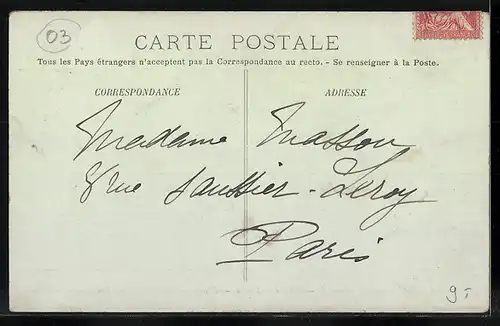 03
CARTE POSTALE
Tous les Pays étrangers n'acceptent pas la Correspondance au recto. - Se renseigner à la Poste.
CORRESPONDANCE
ADRESSE
Madame Masson
8 rue Saussier-Leroy
Paris
9.-